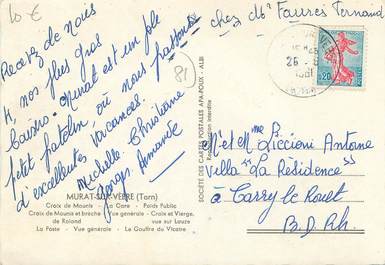 10 €
chez Mr Faures Fernand
Recevez de nous
4, nos plus gros
baisers. Murat est un joli
petit patelin, où nous passons
d'excellentes vacances.
Michelle. Christiane
Amanda
81
25 - 8
0,20
MURAT-SUR-VÈBRE (Tarn)
Croix de Mounis - La Gare - Poids Public
Croix de Mounis et brèche - Vue générale - Croix et Vierge,
de Roland vue sur Lauze
La Poste - Vue générale - Le Gouffre du Vicaire
SOCIÉTÉ DES CARTES POSTALES APA-POUX - ALBI
Reproduction interdite
M et Mme Piccioni Antoine
Villa "La Résidence"
à Carry le Rouet
B.D.Rh.